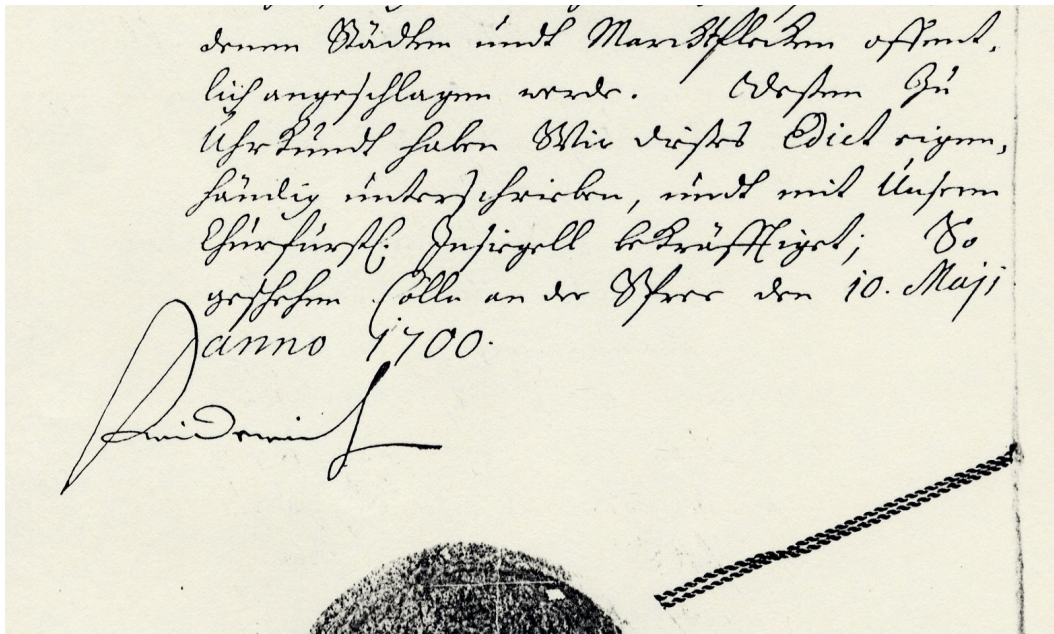 denen Städten undt Marcktflecken offent-
lich angeschlagen werde. Deßen Zu
Uhrkundt haben Wir dießes Edict eigen-
händig unterschrieben, undt mit Unserm
Churfürstl. Insiegell bekräfftiget; So
geschehen Cölln an der Spree den 10. Maji
anno 1700.
Friderich